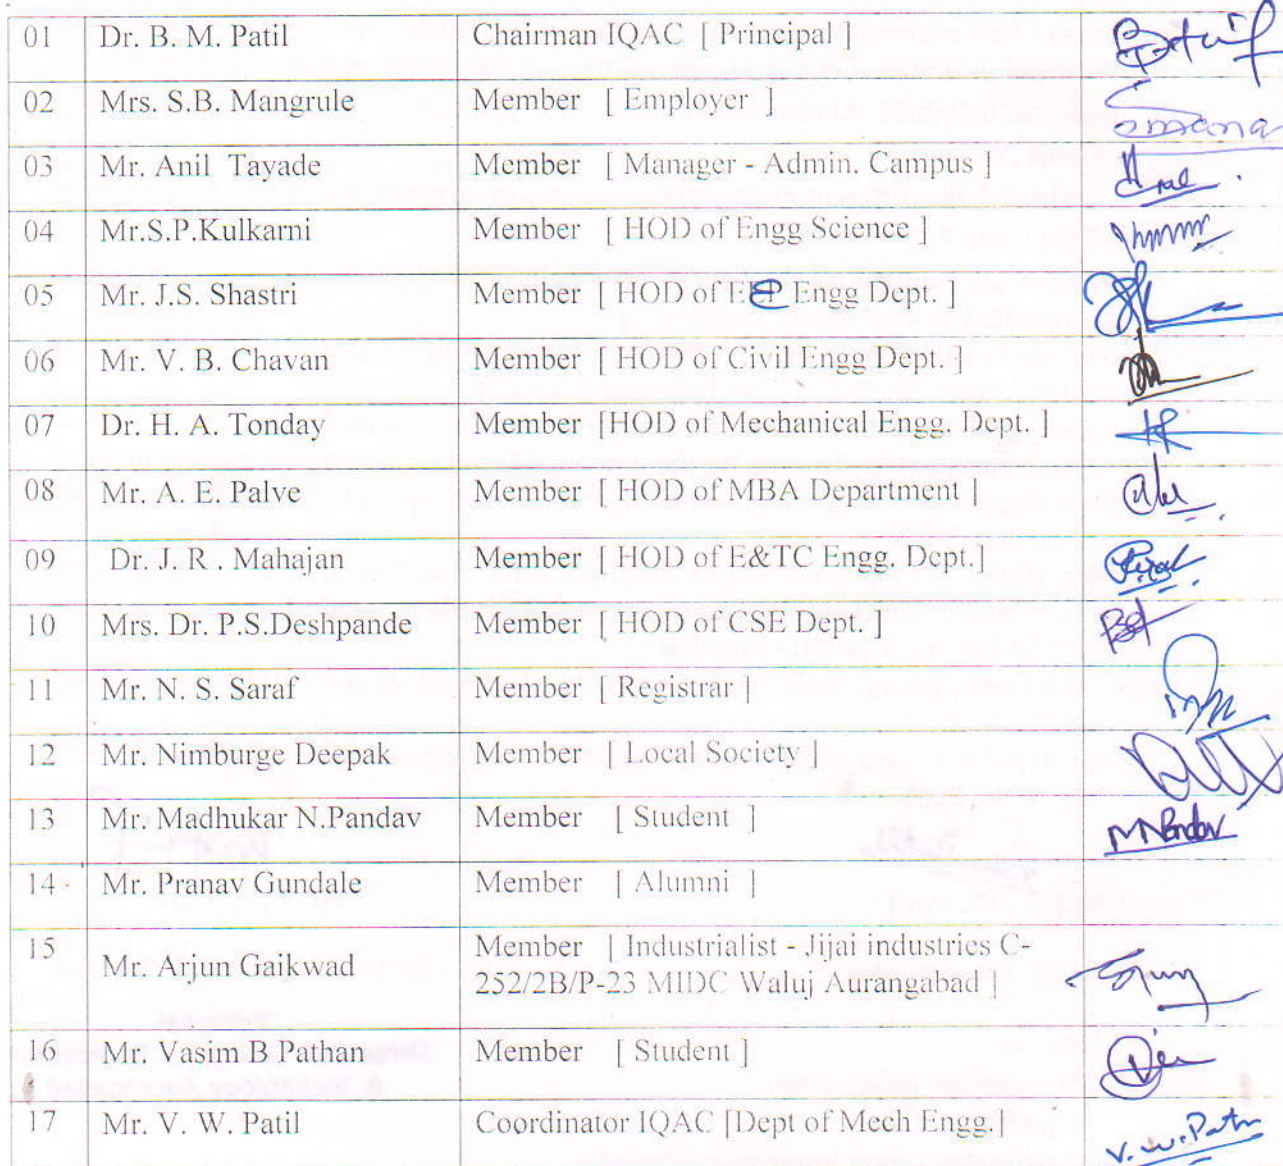 01 Dr. B. M. Patil Chairman IQAC [ Principal ]
02 Mrs. S.B. Mangrule Member [ Employer ]
03 Mr. Anil Tayade Member [ Manager - Admin. Campus ]
04 Mr.S.P.Kulkarni Member [ HOD of Engg Science ]
05 Mr. J.S. Shastri Member [ HOD of EEP Engg Dept. ]
06 Mr. V. B. Chavan Member [ HOD of Civil Engg Dept. ]
07 Dr. H. A. Tonday Member [HOD of Mechanical Engg. Dept. ]
08 Mr. A. E. Palve Member [ HOD of MBA Department ]
09 Dr. J. R . Mahajan Member [ HOD of E&TC Engg. Dept.]
10 Mrs. Dr. P.S.Deshpande Member [ HOD of CSE Dept. ]
11 Mr. N. S. Saraf Member [Registrar ]
12 Mr. Nimburge Deepak Member [ Local Society ]
13 Mr. Madhukar N.Pandav Member [ Student ] M N Pandav
14 Mr. Pranav Gundale Member [ Alumni ]
15 Mr. Arjun Gaikwad Member [ Industrialist - Jijai industries C-
252/2B/P-23 MIDC Waluj Aurangabad ]
16 Mr. Vasim B Pathan Member [ Student ]
17 Mr. V. W. Patil Coordinator IQAC [Dept of Mech Engg.] V. W. Patil